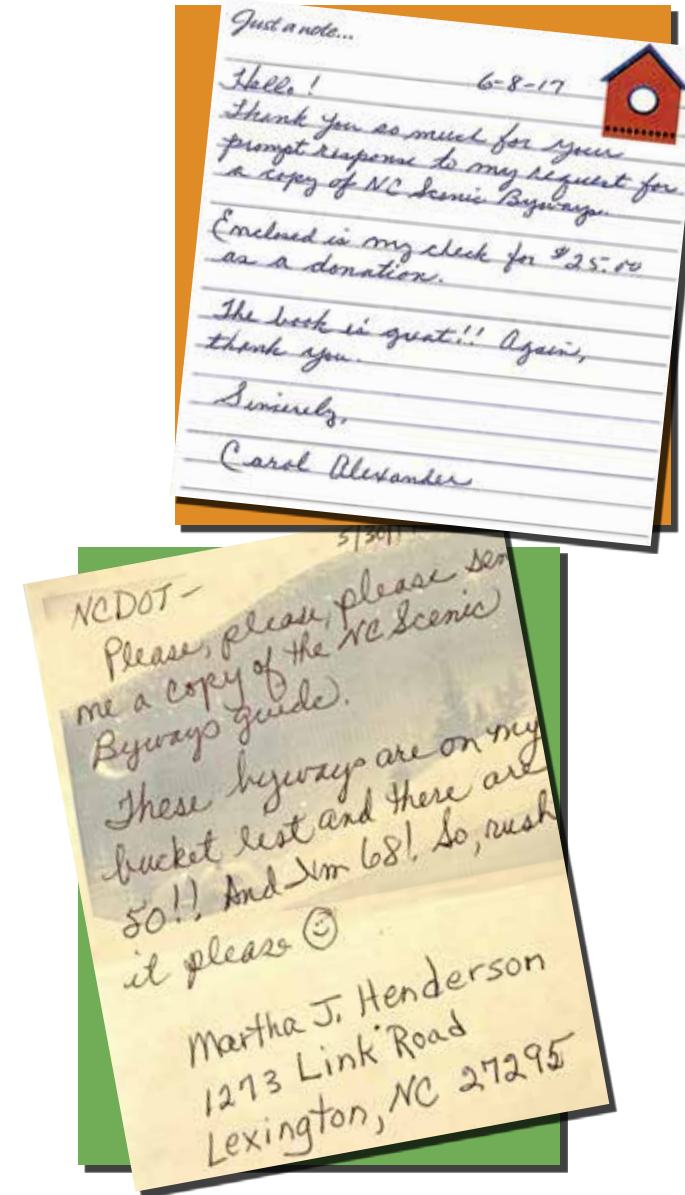 Just a note...
Hello! 6-8-17
Thank you so much for your
prompt response to my request for
a copy of NC Scenic Byways.
Enclosed is my check for $25.00
as a donation.
The book is great!! Again,
thank you.
Sincerely,
Carol Alexander
5/30/1
NCDOT-
Please, please, please sen
me a copy of the NC Scenic
Byways guide.
These byways are on my
bucket list and there are
50!! And I'm 68! So, rush
it please
Martha J. Henderson
1273 Link Road
Lexington, NC 27295